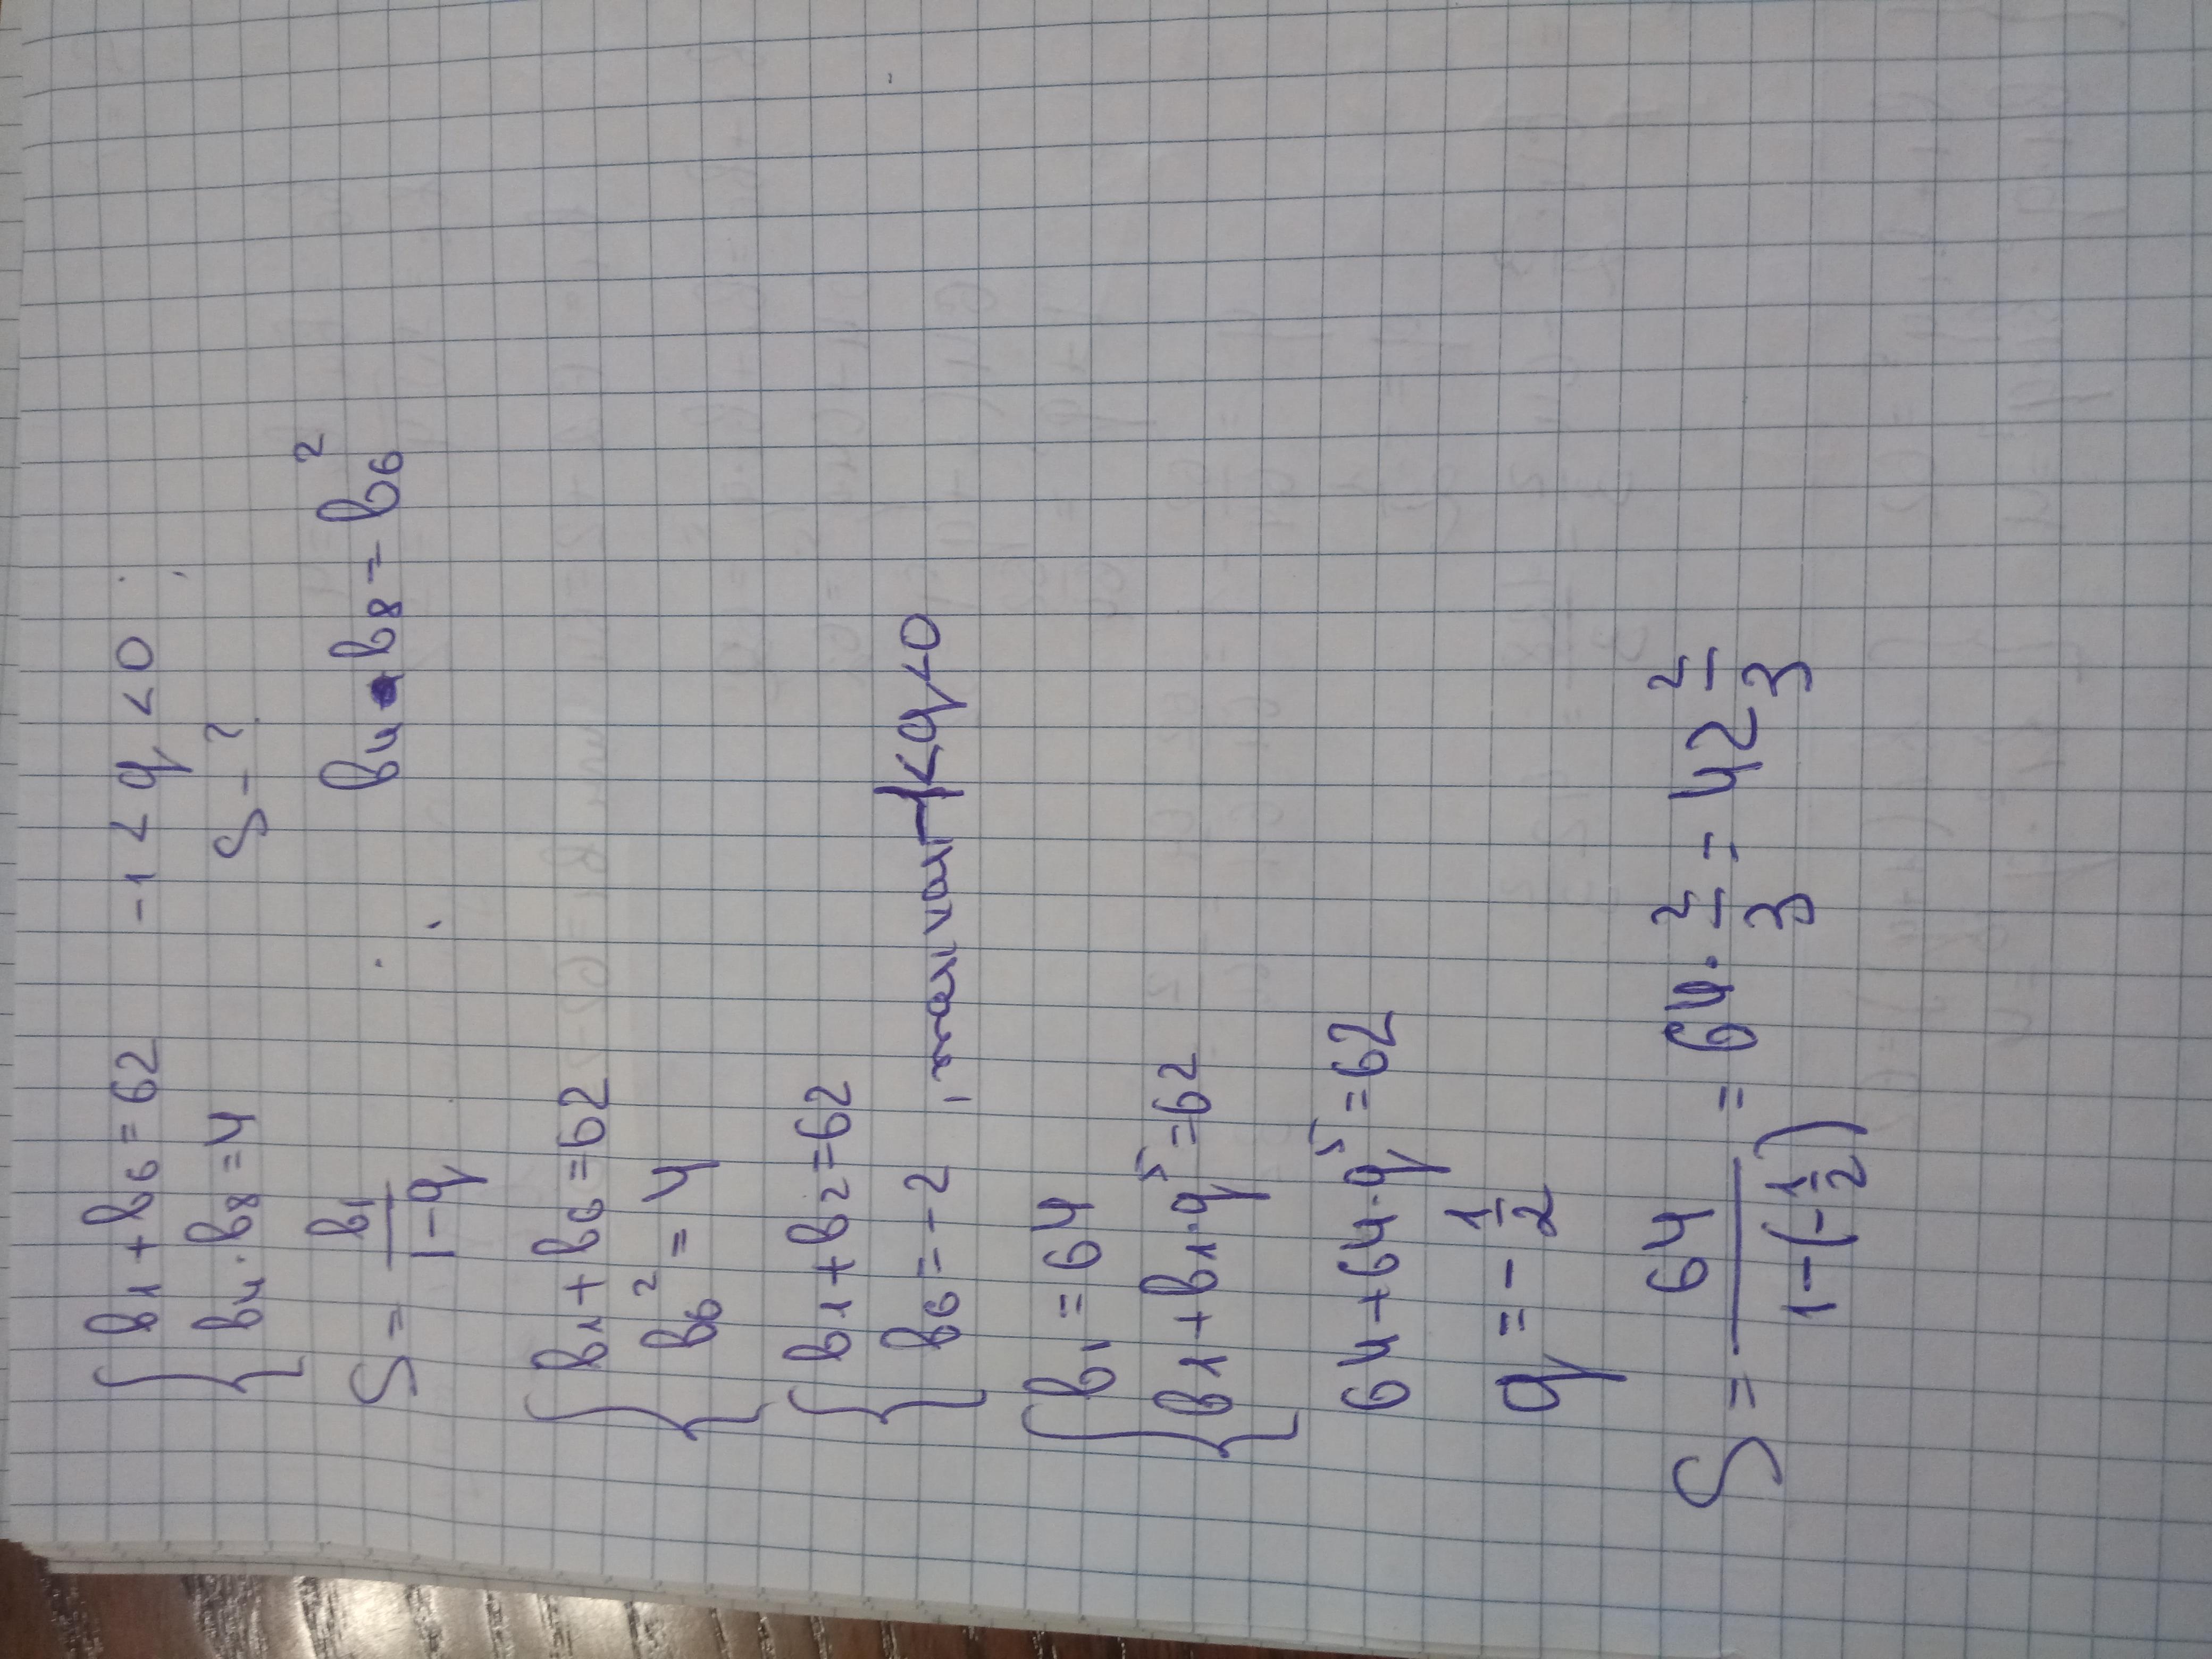 { b₁ + b₆ = 62    -1 < q < 0
{ b₄ · b₈ = 4    S - ?
S = b₁/(1-q)    b₄ · b₈ = b₆²
{ b₁ + b₆ = 62
{ b₆² = 4
{ b₁ + b₂ = 62
{ b₆ = -2 , -1<q<0
{ b₁ = 64
{ b₁ + b₁·q⁵ = 62
64 + 64·q⁵ = 62
q = - 1/2
S = 64/(1-(-1/2)) = 64 · 2/3 = 42 2/3